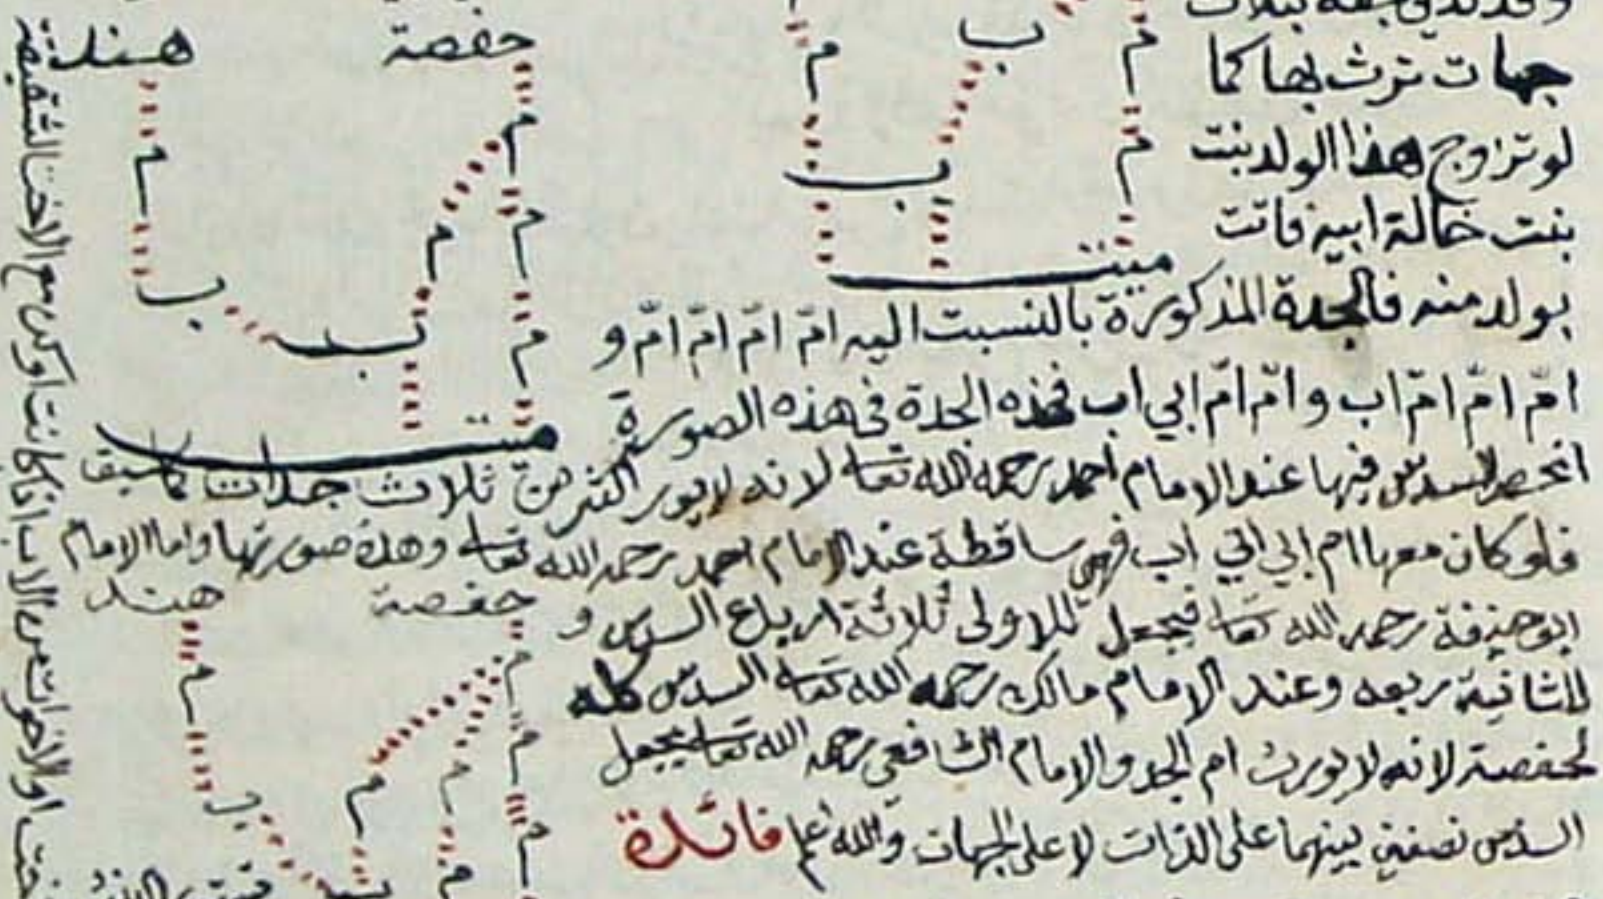 وقد تدلي جهة بثلاث
جهات ترث بها كما
لو تزوج هذا الولد بنت
بنت خالة ابيه فاتت
بولد منه فالجدة المذكورة بالنسبت اليه امّ امّ امّ امّ و
امّ امّ امّ اب و امّ امّ ابي اب فهذه الجدة في هذه الصورة
انحصر السدس فيها عند الامام احمد رحمه الله تعا لانه لا يورث اكثر من ثلاث جدات كما سبق
فلو كان معها ام ابي ابي اب فهي ساقطة عند الامام احمد رحمه الله تعا وهذه صورتها واما الامام
ابو حنيفة رحمه الله تعا فيجعل للاولى ثلاثة ارباع السدس و
للثانية ربعه وعند الامام مالك رحمه الله تعا السدس كله
لحفصة لانه لا يورث ام الجد والامام الشافعي رحمه الله تعا يجعل
السدس نصفين بينهما على الذات لا على الجهات والله اعلم فائدة
م
ب
م
م
ب
ميت
حفصة
هند
م
م
م
م
ب
م
ب
ميت
حفصة
هند
م
م
م
م
م
ب
م
م
او الاخوات من الاب اذا كانت او كن مع الاخت الشقيقة